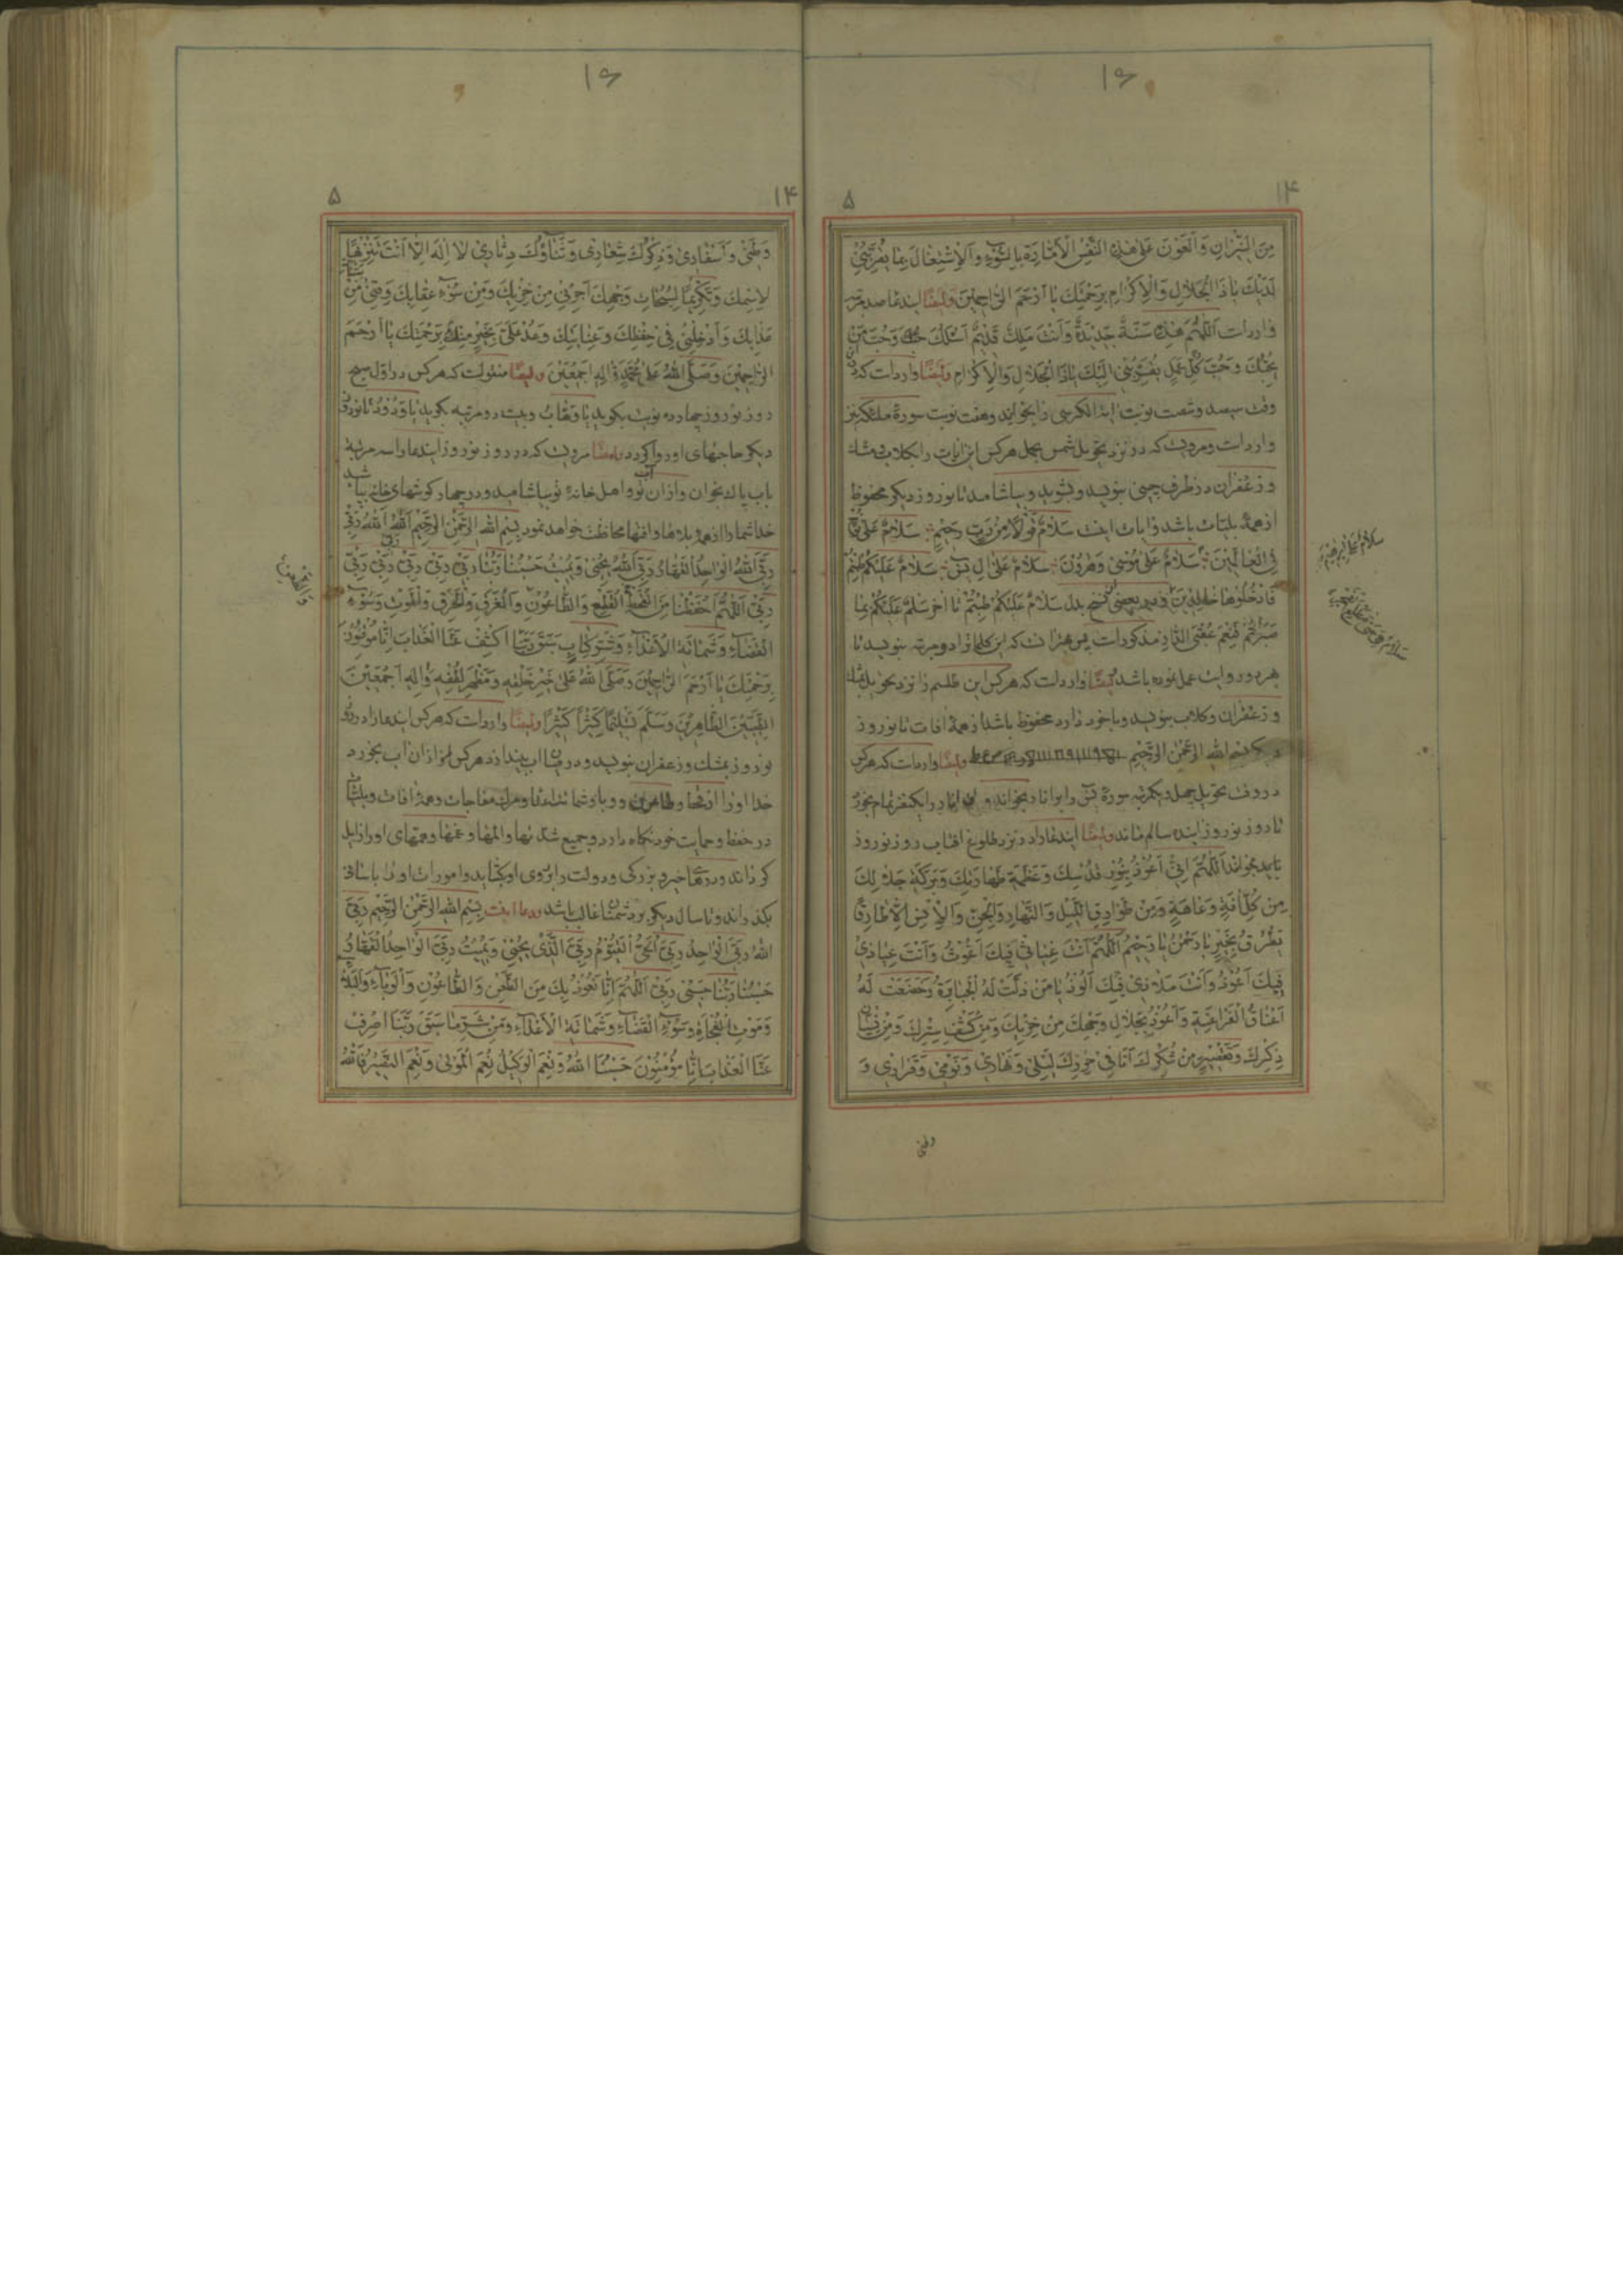 ۱۶
۱۴
۵
مِنَ النّيرانِ وَالْعَوْنَ عَلى هذِهِ النَّفْسِ الْاَمّارَةِ بِالسُّوءِ وَالْاِشْتِغالَ بِما يُقَرِّبُنى
لَدَيْكَ يا ذَا الْجَلالِ وَالْاِكْرامِ بِرَحْمَتِكَ يا اَرْحَمَ الرّاحِمينَ وايضًا ايندعا صد مرتبه
وارد است اَللّهُمَّ هذِهِ سَنَةٌ جَديدَةٌ وَاَنْتَ مَلِكٌ قَديمٌ اَسْئَلُكَ حُبَّكَ وَحُبَّ مَنْ
يُحِبُّكَ وَحُبَّ كُلِّ عَمَلٍ يُقَرِّبُنى اِلَيْكَ يا ذَا الْجَلالِ وَالْاِكْرامِ وايضًا وارد است كه در
وقت سيصد وشصت نوبت اية الكرسى را بخواند وهفت نوبت سورۀ ملك نيز
وارد است ومرويست كه در نزد تحويل شمس بحمل هركس اين ايات را بكلاب ومشك
وزعفران در ظرف چينى بنويسد وبشويد وبياشامد تا نوروز ديكر محفوظ
از همۀ بليّات باشد وايات اينست سَلامٌ قَوْلًا مِنْ رَبٍّ رَحيمٍ سَلامٌ عَلى نُوحٍ
فِى الْعالَمينَ سَلامٌ عَلى مُوسى وَهرُونَ سَلامٌ عَلى الِ يسَ سَلامٌ عَلَيْكُمْ طِبْتُمْ
فَادْخُلُوها خالِدينَ ودر بعضى نسخ بدل سَلامٌ عَلَيْكُمْ طِبْتُمْ تا اخر سَلامٌ عَلَيْكُمْ بِما
صَبَرْتُمْ فَنِعْمَ عُقْبَى الدّارِ مذكور است پس بهتر انست كه اين كلماترا دو مرتبه بنويسد تا
بهر دو روايت عمل نموده باشد ايضًا وارد است كه هركس اين طلسم را نزد تحويل بمشك
وزعفران وكلاب بنويسد وبا خود دارد محفوظ باشد از همۀ افات تا نوروز
ديكر بسم الله الرّحمن الرّحيم وايضًا وارد است كه هركس
در وقت تحويل چهل ويكمرتبه سورۀ يس را بر انار بخواند و
تا روز نوروز اينده سالم ماند وايضًا ايندعا را در نزد طلوع افتاب روز نوروز
بايد بخواند اَللّهُمَّ اِنّى اَعُوذُ بِنُورِ قُدْسِكَ وَعَظَمَةِ طَهارَتِكَ وَبَرَكَةِ جَلالِكَ
مِنْ كُلِّ افَةٍ وَعاهَةٍ وَمِنْ طَوارِقِ اللَّيْلِ وَالنَّهارِ وَالْجِنِّ وَالْاِنْسِ اِلّا طارِقًا
يَطْرُقُ بِخَيْرٍ يا رَحْمنُ يا رَحيمُ اَللّهُمَّ اَنْتَ غِياثى فَبِكَ اَغُوثُ وَاَنْتَ عِياذى
فَبِكَ اَعُوذُ وَاَنْتَ مَلاذى فَبِكَ اَلُوذُ يا مَنْ ذَلَّتْ لَهُ الْجَبابِرَةُ وَخَضَعَتْ لَهُ
اَعْناقُ الْفَراعِنَةِ وَاَعُوذُ بِجَلالِ وَجْهِكَ مِنْ خِزْيِكَ وَمِنْ كَشْفِ سِتْرِكَ وَمِنْ نِسْيانِ
ذِكْرِكَ وَ مِنْ شُكْرِكَ اَنَا فى حِرْزِكَ لَيْلى وَنَهارى وَنَوْمى وَقَرارى وَ
سلامٌ على ابرهيم
وطنى
۱۶
۱۴
۵
وَطَنى وَاَسْفارى وَذِكْرُكَ شِعارى وَثَناؤُكَ دِثارى لا اِلهَ اِلّا اَنْتَ تَنْزيهًا
لِاِسْمِكَ وَتَكْريمًا لِسُبُحاتِ وَجْهِكَ اَجِرْنى مِنْ خِزْيِكَ وَمِنْ سُوءِ عِقابِكَ وَقِنى مِنْ
عَذابِكَ وَاَدْخِلْنى فى حِفْظِكَ وَعِنايَتِكَ وَعُدْ عَلَىَّ بِخَيْرٍ مِنْكَ بِرَحْمَتِكَ يا اَرْحَمَ
الرّاحِمينَ وَصَلَّى اللهُ عَلى مُحَمَّدٍ وَالِهِ اَجْمَعينَ وايضًا منقولست كه هركس در اوّل صبح
روز نوروز چهارده نوبت بكويد يا وَهّابُ وبيست دو مرتبه بكويد يا وَدُودُ تا نوروز
ديكر حاجتهاى او روا كردد وايضًا مرويست كه در روز نوروز ايندعا را سه مرتبه
باب پاك بخوان وازان اب تو واهل خانۀ تو بياشاميد ودر چهار كوشهاى خانه بپاشيد
خدا شما را از همۀ بلاها وافتها محافظت خواهد نمود بِسْمِ اللهِ الرَّحْمنِ الرَّحيمِ اَللهُ اَللهُ رَبّى
رَبِّىَ اللهُ الْواحِدُ الْقَهّارُ رَبِّىَ اللهُ يُحْيى وَيُميتُ حَسْبُنا رَبُّنا رَبّى رَبّى رَبّى رَبّى رَبّى
رَبّى اَللّهُمَّ احْفَظْنا مِنَ الْقَحْطِ وَالطّاعُونِ وَالْغَرَقِ وَالْحَرَقِ وَالْمَوْتِ وَسُوءِ
الْقَضاءِ وَشَماتَةِ الْاَعْداءِ وَشَرِّ كِتابٍ سَبَقَ رَبَّنَا اكْشِفْ عَنَّا الْعَذابَ اِنّا مُؤْمِنُونَ
بِرَحْمَتِكَ يا اَرْحَمَ الرّاحِمينَ وَصَلَّى اللهُ عَلى خَيْرِ خَلْقِهِ وَمَظْهَرِ لُطْفِهِ وَالِهِ اَجْمَعينَ
الطَّيِّبينَ الطّاهِرينَ وَسَلَّمَ تَسْليمًا كَثيرًا كَثيرًا وايضًا وارد است كه هركس ايندعا را در روز
نوروز بمشك وزعفران بنويسد ودر ميان اب بيندازد هركس از ان اب بخورد
خدا او را از وطاعون ووبا وشماتت اعدا ومرك مفاجات وهمۀ افات وبليّات
در حفظ وحمايت خود نكاه دارد وجميع شدّتها والمها وغمها وهمّهاى او را زايل
كرداند ودرهاى خير وبزركى ودولت را بروى او بكشايد وامورات او را باسانى
بكذراند وتا سال ديكر بر دشمنان غالب باشد ودعا اينست بِسْمِ اللهِ الرَّحْمنِ الرَّحيمِ رَبِّىَ
اللهُ رَبِّىَ الْواحِدُ رَبِّىَ الْحَىُّ الْقَيُّومُ رَبِّىَ الَّذى يُحْيى وَيُميتُ رَبِّىَ الْواحِدُ الْقَهّارُ
حَسْبُنا رَبُّنا حَسْبى رَبّى اَللّهُمَّ اِنّا نَعُوذُ بِكَ مِنَ الطَّعْنِ وَالطّاعُونِ وَالْوَباءِ وَالْبَلاءِ
وَمَوْتِ الْفُجْأَةِ وَسُوءِ الْقَضاءِ وَشَماتَةِ الْاَعْداءِ وَمِنْ شَرِّ ما سَبَقَ رَبَّنَا اصْرِفْ
عَنَّا الْعَذابَ اِنّا مُؤْمِنُونَ حَسْبُنَا اللهُ وَنِعْمَ الْوَكيلُ نِعْمَ الْمَوْلى وَنِعْمَ النَّصيرُ فَاللهُ